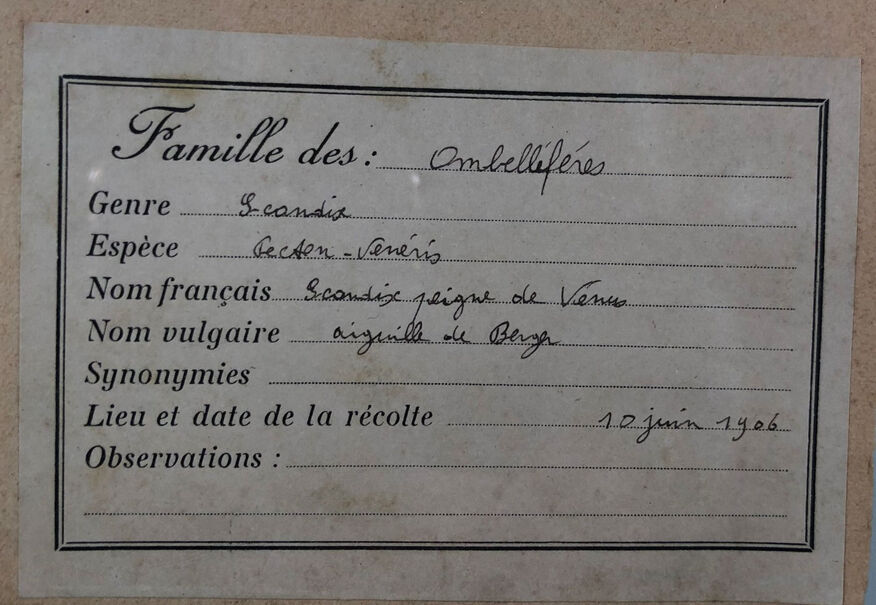 Famille des : Ombelliféres
Genre Scandix
Espèce Pecten-Venéris
Nom français Scandix peigne de Venus
Nom vulgaire aiguille de Berger
Synonymies
Lieu et date de la récolte 10 juin 1906
Observations :